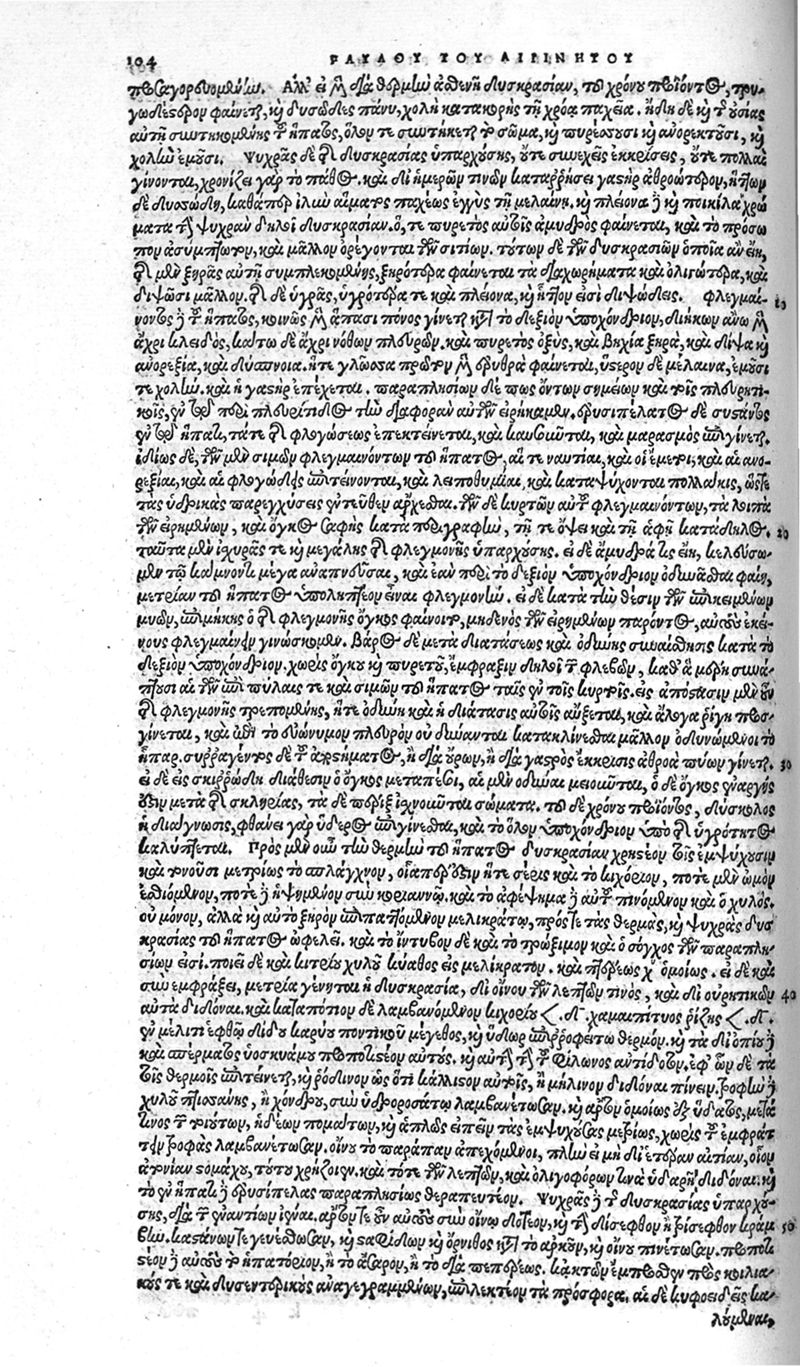 104 ΠΑΥΛΟΥ ΤΟΥ ΑΙΓΙΝΗΤΟΥ
προσαγορευομένων. Ἀλλ' εἰ μὲν διὰ θερμὴν ἀσθενῇ δυσκρασίαν, τοῦ χρόνου προϊόντος, τρυ-
γωδέστερον φαίνεται, καὶ δυσῶδες πάνυ, χολὴ κατακορὴς τῇ χρόᾳ παχεῖα. ἤδη δὲ καὶ τῆς οὐσίας
αὐτῆ συντηκομένης τοῦ ἥπατος, ὅλον τε συντήκεται τὸ σῶμα, καὶ πυρέσσουσι καὶ ἀνορεκτοῦσι, καὶ
χολὴν ἐμοῦσι. Ψυχρᾶς δὲ τῆς δυσκρασίας ὑπαρχούσης, οὔτε συνεχεῖς ἐκκρίσεις, οὔτε πολλαὶ
γίνονται, χρονίζει γὰρ τὸ πάθος. καὶ δι' ἡμερῶν τινῶν καταρρήσει γαστὴρ ἀθροώτερον, ἧττον
δὲ δυσώδη, καθάπερ ἰλὺν αἵματος παχέως ἐγγὺς τῇ μελαίνῃ. καὶ πλείονα δὲ καὶ ποικίλα χρώ
ματα τὴν ψυχρὰν δηλοῖ δυσκρασίαν. ὅ, τε πυρετὸς αὐτοῖς ἀμυδρὸς φαίνεται, καὶ τὸ πρόσω
πον ἀσύμπτωτον, καὶ μᾶλλον ὀρέγονται τῶν σιτίων. τούτων δὲ τῶν δυσκρασιῶν ὁποία ἂν εἴη,
τῆς μὲν ξηρᾶς αὐτῇ συμπλεκομένης, ξηρότερα φαίνεται τὰ διαχωρήματα καὶ ὀλιγώτερα, καὶ
διψῶσι μᾶλλον. τῆς δὲ ὑγρᾶς, ὑγρότερα τε καὶ πλείονα, καὶ ἧττον εἰσὶ διψώδεις. Φλεγμαί- 10
νοντος δὲ τοῦ ἥπατος, κοινῶς μὲν ἅπασι πόνος γίνεται κατὰ τὸ δεξιὸν ὑποχόνδριον, διήκων ἄνω μὲν
ἄχρι κλειδὸς, κάτω δὲ ἄχρι νόθων πλευρῶν. καὶ πυρετὸς ὀξὺς, καὶ βηχία ξηρά, καὶ δίψα καὶ
ἀνορεξία, καὶ δύσπνοια. ἥ τε γλῶσσα πρῶτον μὲν ἐρυθρὰ φαίνεται, ὕστερον δὲ μέλαινα, ἐμοῦσί
τε χολὴν. καὶ ἡ γαστὴρ ἐπέχεται. παραπλησίων δέ πως ὄντων σημείων καὶ τοῖς πλευριτι-
κοῖς, ἐν τῷ περὶ πλευρίτιδος τὴν διαφορὰν αὐτῶν εἰρήκαμεν. ἐρυσιπέλατος δὲ συστάντος
ἐν τῷ ἥπατι, τά τε τῆς φλογώσεως ἐπεκτείνεται, καὶ καυσοῦται, καὶ μαρασμὸς ἐπιγίνεται.
ἰδίως δὲ, τῶν μὲν σιμῶν φλεγμαινόντων τοῦ ἥπατος, αἵ τε ναυτίαι, καὶ οἱ ἔμετοι, καὶ αἱ ἀνο-
ρεξίαι, καὶ αἱ φλογώδεις ἐπιτείνονται, καὶ λειποθυμίαι, καὶ καταψύχονται πολλάκις, ὥστε
τὰς ὑδρικὰς παρεγχύσεις ἐντεῦθεν ἄρχεσθαι. τῶν δὲ κυρτῶν αὐτοῦ φλεγμαινόντων, τὰ λοιπὰ
τῶν εἰρημένων, καὶ ὄγκος σαφὴς κατὰ περιγραφὴν, τῇ τε ὄψει καὶ τῇ ἁφῇ κατάδηλος. 20
ταῦτα μὲν ἰσχυρᾶς τε καὶ μεγάλης τῆς φλεγμονῆς ὑπαρχούσης. εἰ δὲ ἀμυδρά τις εἴη, κελεύσω-
μεν τῷ κάμνοντι μέγα ἀναπνεῦσαι, καὶ ἐὰν περὶ τὸ δεξιὸν ὑποχόνδριον ὀδυνᾶσθαι φαίη,
μετρίαν τοῦ ἥπατος ὑποληπτέον εἶναι φλεγμονὴν. εἰ δὲ κατὰ τὴν θέσιν τῶν ἐπικειμένων
μυῶν, ἐπιμήκης ὁ τῆς φλεγμονῆς ὄγκος φαίνοιτο, μηδενὸς τῶν εἰρημένων παρόντος, αὐτοὺς ἐκεί-
νους φλεγμαίνειν γινώσκομεν. Βάρος δὲ μετὰ διατάσεως καὶ ὀδύνης συναίσθησις κατὰ τὸ
δεξιὸν ὑποχόνδριον. χωρὶς ὄγκου καὶ πυρετοῦ, ἔμφραξιν δηλοῖ τῶν φλεβῶν, καθ' ἃ μέρη συνά-
πτουσι αἱ τῶν ἐπὶ πύλαις τε καὶ σιμῶν τοῦ ἥπατος ταῖς ἐν τοῖς κυρτοῖς. εἰς ἀπόστασιν μὲν οὖν
τῆς φλεγμονῆς τρεπομένης, ἥ τε ὀδύνη καὶ ἡ διάτασις αὐτοῖς αὔξεται, καὶ ἄλογα ῥίγη προσ-
γίνεται, καὶ ἐπὶ τὸ εὐώνυμον πλευρὸν οὐ δύνανται κατακλίνεσθαι μᾶλλον ὀδυνώμενοι τὸ
ἧπαρ. συρραγέντος δὲ τοῦ ἀποστήματος, ἢ διὰ οὔρων, ἢ διὰ γαστρὸς ἔκκρισις ἀθρόα πύων γίνεται. 30
εἰ δὲ εἰς σκιρρώδη διάθεσιν ὁ ὄγκος μεταπέσοι, αἱ μὲν ὀδύναι μειοῦνται, ὁ δὲ ὄγκος ἐναργής
ἐστιν μετὰ τῆς σκληρίας, τὰ δὲ πέριξ ἰσχνοῦνται σώματα. τοῦ δὲ χρόνου προϊόντος, δύσκολος
ἡ διάγνωσις, φθάνει γὰρ ὕδερος ἐπιγίνεσθαι, καὶ τὸ ὅλον ὑποχόνδριον ὑπὸ τῆς ὑγρότητος
καλύπτεται. Πρὸς μὲν οὖν τὴν θερμὴν τοῦ ἥπατος δυσκρασίαν χρηστέον τοῖς ἐμψύχουσιν
καὶ τονοῦσι μετρίως τὸ σπλάγχνον, οἷαπέρ ἐστιν ἥ τε σέρις καὶ τὸ κιχόριον, ποτὲ μὲν ὠμὸν
ἐσθιόμενον, ποτὲ δὲ ἡψημένον σὺν κοριάννῳ. καὶ τὸ ἀφέψημα δὲ αὐτοῦ πινόμενον καὶ ὁ χυλὸς.
οὐ μόνον, ἀλλὰ καὶ αὐτὸ ξηρὸν ἐπιπαττόμενον μελικράτῳ, πρός τε τὰς θερμὰς, καὶ ψυχρὰς δυσ
κρασίας τοῦ ἥπατος ὠφελεῖ. καὶ τὸ ἴντυβον δὲ καὶ τὸ τρώξιμον καὶ ὁ σόγχος τῶν παραπλη-
σίων εἰσί. ποιεῖ δὲ καὶ κιτρίου χυλοῦ κύαθος εἰς μελίκρατον. καὶ πτέρεως χ' ὁμοίως. εἰ δὲ καὶ
σὺν ἐμφράξει, μετρία γένηται ἡ δυσκρασία, δι' οἴνου τῶν λεπτῶν τινὸς, καὶ δι' οὐρητικῶν 40
αὐτὰ διδόναι. καὶ καταπότιον δὲ λαμβανόμενον κιχορίου < δ'. χαμαιπίτυος ῥίζης < δ'.
ἐν μέλιτι ἑφθῷ δίδου καρύου ποντικοῦ μέγεθος, καὶ ὕδωρ ἐπιρροφείτω θερμόν. καὶ τὰ δι' ὀπίου δὲ
καὶ σπέρματος ὑοσκυάμου προποτιστέον αὐτούς. καὶ αὐτὴν τὴν τοῦ Φίλωνος ἀντίδοτον, ἐφ' ὧν δὲ τὰ
τοῖς θερμοῖς ἐπιτείνεται, καὶ ῥόδινον ὡς ὅτι κάλλιστον αὐτοῖς, ἢ μήλινον διδόναι πίνειν. ῥοφὴν δὲ
χυλοῦ πτισσάνης, ἢ χόνδρου, σὺν ὑδροροσάτῳ λαμβανέτωσαν. καὶ ἄρτον ὁμοίως ἐξ ὕδατος, μετά
τινος τῶν τοιούτων, ἡδέων πομάτων, καὶ ἁπλῶς εἰπεῖν τὰς ἐμψυχούσας μετρίως, χωρὶς τοῦ ἐμφράτ
τειν ῥοφὰς λαμβανέτωσαν. οἴνου τὸ παράπαν ἀπεχόμενοι, πλὴν εἰ μὴ δι' ἑτέραν αἰτίαν, οἷον
ἀτονίαν στομάχου, τούτου χρῄζοιεν. καὶ τότε τῶν λεπτῶν, καὶ ὀλιγοφόρων τινὰ ὑδαρῆ διδόναι. καὶ
τὸ ἐν ἥπατι δὲ ἐρυσίπελας παραπλησίως θεραπευτέον. Ψυχρᾶς δὲ τῆς δυσκρασίας ὑπαρχού-
σης, διὰ τῶν ἐναντίων ἰέναι. ἄρτον τε οὖν αὐτοῖς σὺν οἴνῳ δοτέον, καὶ τὴν δίσεφθον ἢ τρίσεφθον κράμ 50
βην. καστάνων τε γευέσθωσαν, καὶ σταφίδων καὶ ὄρνιθος κατὰ τὸ ἀρκοῦν, καὶ οἴνου πινέτωσαν. προποτι
στέον δὲ αὐτοὺς τὸ ἡπατόριον, ἢ τὸ ἄσαρον, ἢ τὸ διὰ πεπέρεως. κἀκ τῶν ἔμπροσθεν πρὸς κοιλια-
κούς τε καὶ δυσεντερικοὺς ἀναγεγραμμένων, ἐπιλεκτέον τὰ πρόσφορα. αἱ δὲ κυφοειδεῖς κα-
λούμεναι,